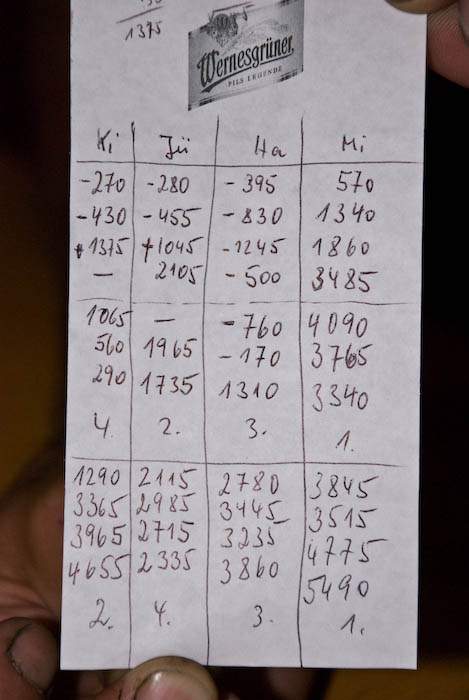 1375
Wernesgrüner
PILS LEGENDE
Ki Jü Ha Mi
-270 -280 -395 570
-430 -455 -830 1340
+1375 +1045 -1245 1860
— 2105 -500 3485
1065 — -760 4090
560 1965 -170 3765
290 1735 1310 3340
4. 2. 3. 1.
1290 2115 2780 3845
3365 2985 3445 3515
3965 2715 3235 4775
4655 2335 3860 5490
2. 4. 3. 1.